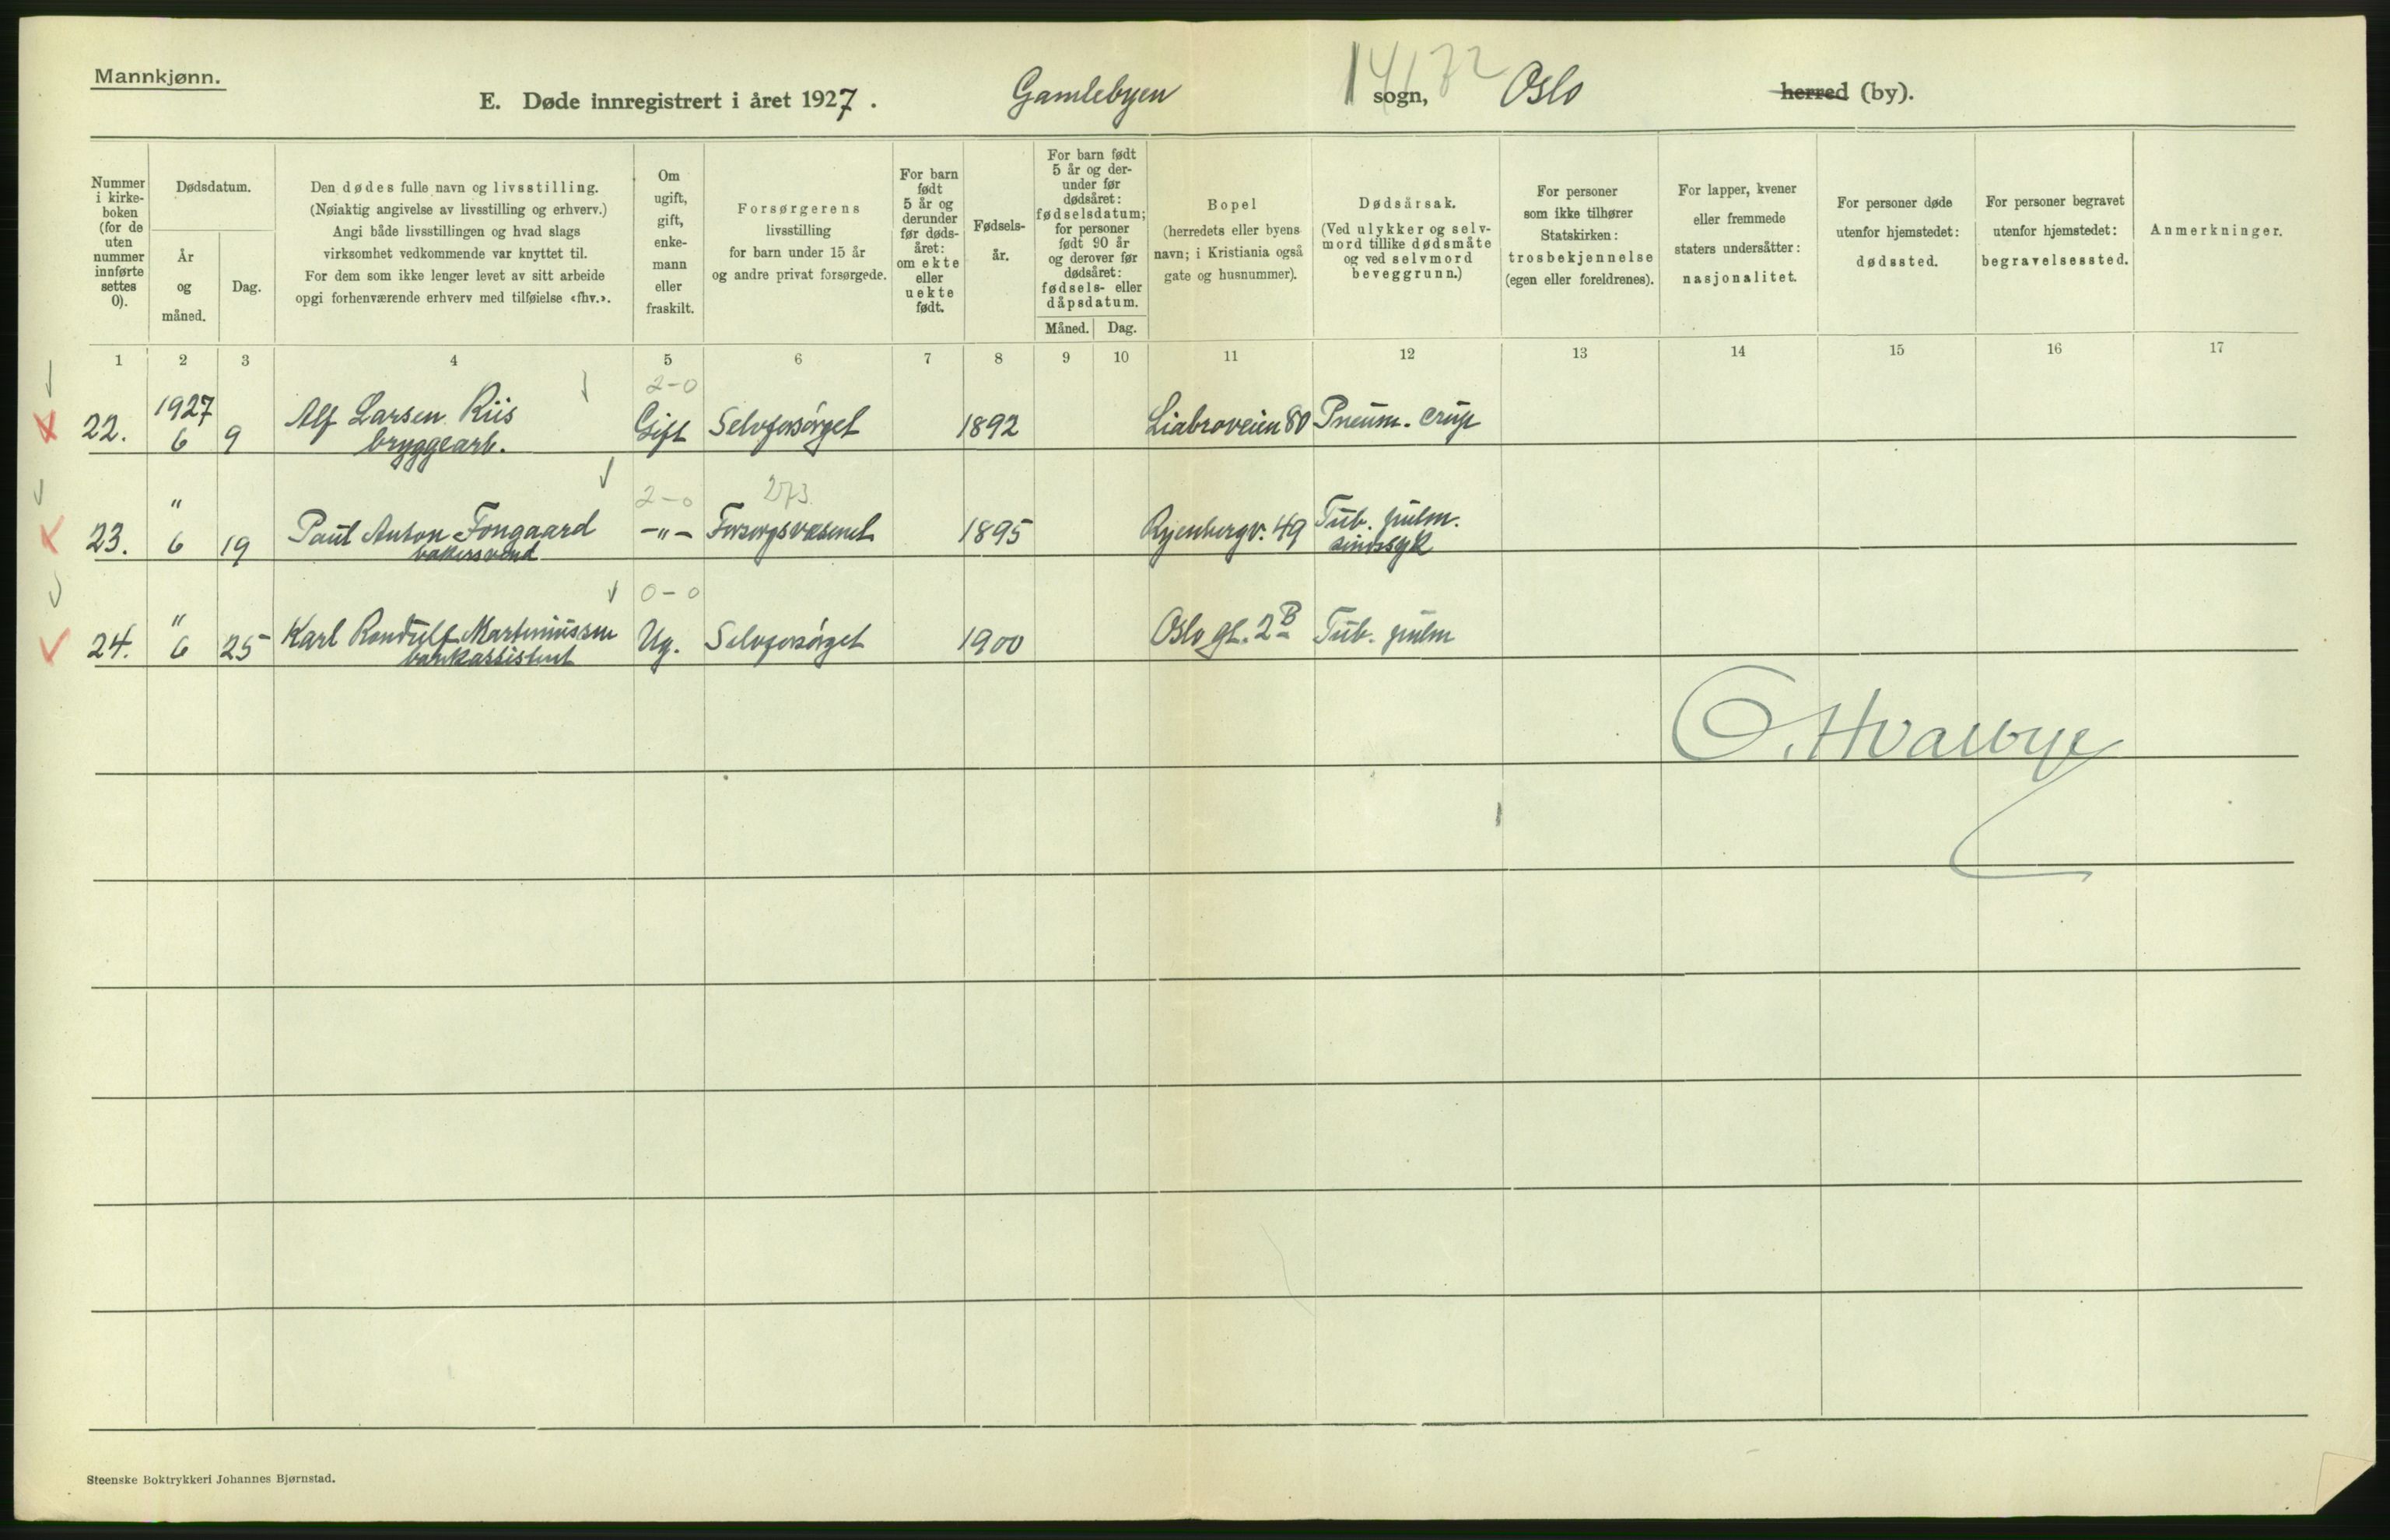 Mannkjønn.
E. Døde innregistrert i året 1927. Gamlebyen sogn, Oslo herred (by).
Nummer i kirke-boken (for de uten nummer innførte settes 0).
Dødsdatum.
År og måned.
Dag.
Den dødes fulle navn og livsstilling.
(Nøiaktig angivelse av livsstilling og erhverv.)
Angi både livsstillingen og hvad slags
virksomhet vedkommende var knyttet til.
For dem som ikke lenger levet av sitt arbeide
opgi forhenværende erhverv med tilføielse «fhv.».
Om ugift, gift, enke-mann eller fraskilt.
Forsørgerens
livsstilling
for barn under 15 år
og andre privat forsørgede.
For barn født 5 år og derunder før døds-året: om ekte eller uekte født.
Fødsels-år.
For barn født 5 år og der-under før dødsåret: fødselsdatum; for personer født 90 år og derover før dødsåret: fødsels- eller dåpsdatum.
Måned. Dag.
Bopel
(herredets eller byens
navn; i Kristiania også
gate og husnummer).
Dødsårsak.
(Ved ulykker og selv-
mord tillike dødsmåte
og ved selvmord
beveggrunn.)
For personer
som ikke tilhører
Statskirken:
trosbekjennelse
(egen eller foreldrenes).
For lapper, kvener
eller fremmede
staters undersåtter:
nasjonalitet.
For personer døde
utenfor hjemstedet:
dødssted.
For personer begravet
utenfor hjemstedet:
begravelsessted.
Anmerkninger.
1 2 3 4 5 6 7 8 9 10 11 12 13 14 15 16 17
2-0
22. 1927 6 9 Alf Larsen Riis Gift Selvforsørget 1892 Liabroveien 80 Pneum. crup
bryggearb.
2-0 273
23. " 6 19 Paul Anton Fongaard -"- Forsorgsvæsenet 1895 Ryenbergv. 49 Tub. pulm.
bakersvend sindssyk
0-0
24. " 6 25 Karl Rondulf Martiniussen Ug. Selvforsørget 1900 Oslo gt. 2B Tub. pulm
bankassistent
Steenske Boktrykkeri Johannes Bjørnstad.